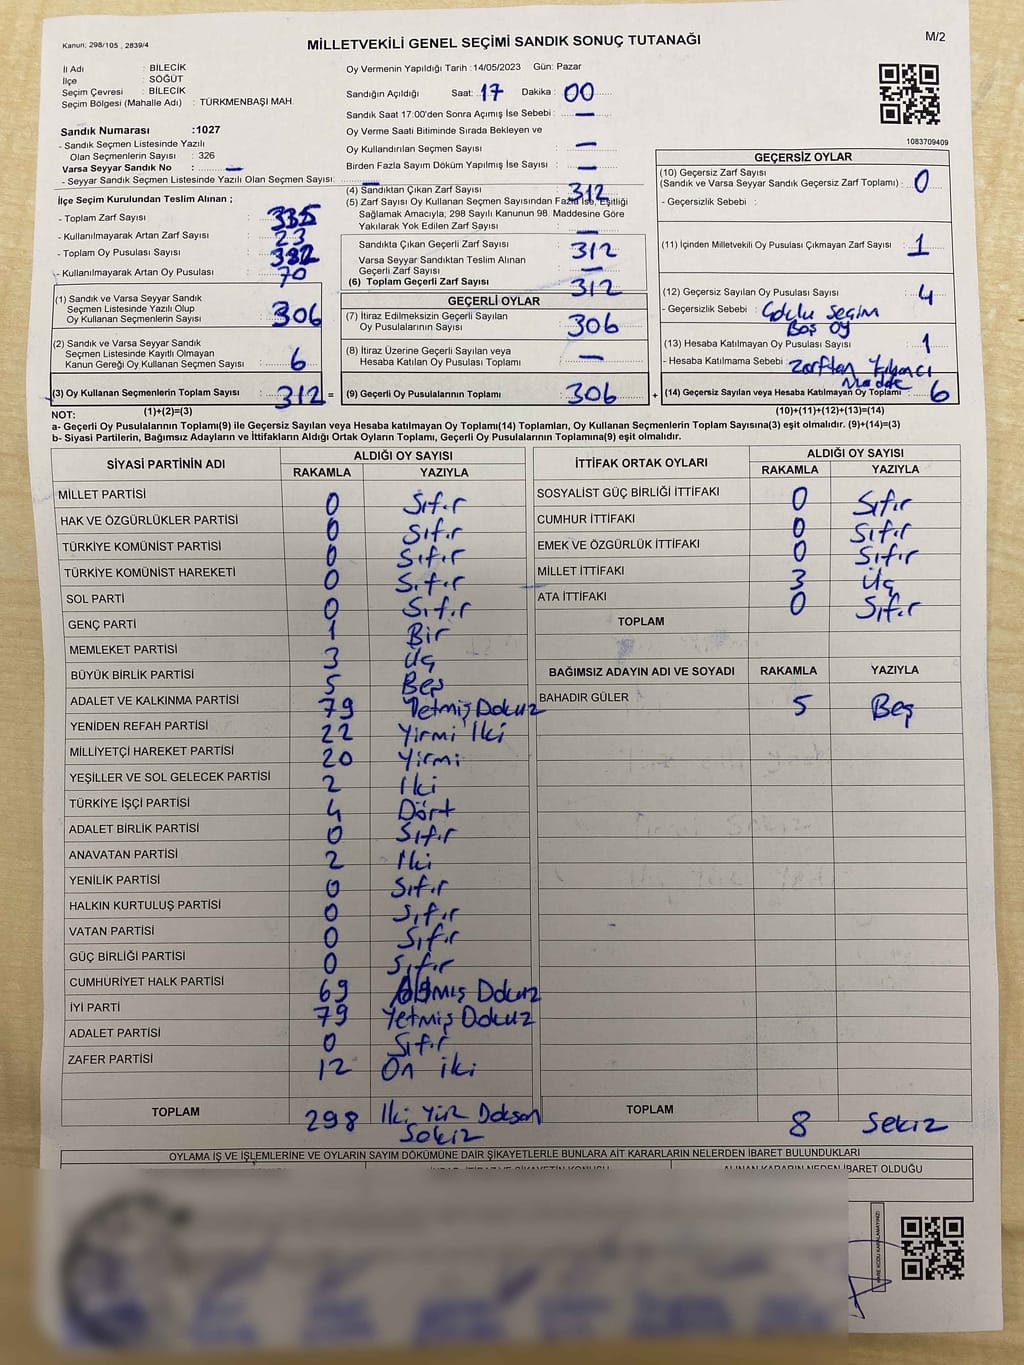 Kanun: 298/105 , 2839/4
MİLLETVEKİLİ GENEL SEÇİMİ SANDIK SONUÇ TUTANAĞI
M/2
İl Adı : BİLECİK
İlçe : SÖĞÜT
Seçim Çevresi : BİLECİK
Seçim Bölgesi (Mahalle Adı) : TÜRKMENBAŞI MAH.
Oy Vermenin Yapıldığı Tarih :14/05/2023 Gün: Pazar
Sandığın Açıldığı Saat: 17 Dakika : 00
Sandık Saat 17:00'den Sonra Açımış İse Sebebi : —
Oy Verme Saati Bitiminde Sırada Bekleyen ve
Oy Kullandırılan Seçmen Sayısı : —
Birden Fazla Sayım Döküm Yapılmış İse Sayısı : —
1083709409
Sandık Numarası :1027
- Sandık Seçmen Listesinde Yazılı
Olan Seçmenlerin Sayısı : 326
Varsa Seyyar Sandık No : —
- Seyyar Sandık Seçmen Listesinde Yazılı Olan Seçmen Sayısı: —
İlçe Seçim Kurulundan Teslim Alınan ;
- Toplam Zarf Sayısı : 335
- Kullanılmayarak Artan Zarf Sayısı : 23
- Toplam Oy Pusulası Sayısı : 382
- Kullanılmayarak Artan Oy Pusulası : 70
(1) Sandık ve Varsa Seyyar Sandık
Seçmen Listesinde Yazılı Olup
Oy Kullanan Seçmenlerin Sayısı : 306
(2) Sandık ve Varsa Seyyar Sandık
Seçmen Listesinde Kayıtlı Olmayan
Kanun Gereği Oy Kullanan Seçmen Sayısı : 6
(3) Oy Kullanan Seçmenlerin Toplam Sayısı : 312 =
(4) Sandıktan Çıkan Zarf Sayısı : 312
(5) Zarf Sayısı Oy Kullanan Seçmen Sayısından Fazla İse, Eşitliği
Sağlamak Amacıyla; 298 Sayılı Kanunun 98. Maddesine Göre
Yakılarak Yok Edilen Zarf Sayısı : —
Sandıkta Çıkan Geçerli Zarf Sayısı : 312
Varsa Seyyar Sandıktan Teslim Alınan
Geçerli Zarf Sayısı : —
(6) Toplam Geçerli Zarf Sayısı : 312
GEÇERLİ OYLAR
(7) İtiraz Edilmeksizin Geçerli Sayılan
Oy Pusulalarının Sayısı : 306
(8) İtiraz Üzerine Geçerli Sayılan veya
Hesaba Katılan Oy Pusulası Toplamı : —
(9) Geçerli Oy Pusulalarının Toplamı : 306 +
GEÇERSİZ OYLAR
(10) Geçersiz Zarf Sayısı
(Sandık ve Varsa Seyyar Sandık Geçersiz Zarf Toplamı) : 0
- Geçersizlik Sebebi :
(11) İçinden Milletvekili Oy Pusulası Çıkmayan Zarf Sayısı : 1
(12) Geçersiz Sayılan Oy Pusulası Sayısı : 4
- Geçersizlik Sebebi : Çoklu Seçim
Boş Oy
(13) Hesaba Katılmayan Oy Pusulası Sayısı : 1
- Hesaba Katılmama Sebebi : Zarftan Yabancı
Madde
(14) Geçersiz Sayılan veya Hesaba Katılmayan Oy Toplamı : 6
NOT: (1)+(2)=(3) (10)+(11)+(12)+(13)=(14)
a- Geçerli Oy Pusulaları Toplamı(9) ile Geçersiz Sayılan veya Hesaba katılmayan Oy Toplamı(14) Toplamları, Oy Kullanan Seçmenlerin Toplam Sayısına(3) eşit olmalıdır. (9)+(14)=(3)
b- Siyasi Partilerin, Bağımsız Adayların ve İttifakların Aldığı Ortak Oyların Toplamı, Geçerli Oy Pusulalarının Toplamına(9) eşit olmalıdır.
SİYASİ PARTİNİN ADI ALDIĞI OY SAYISI
RAKAMLA YAZIYLA
MİLLET PARTİSİ 0 Sıfır
HAK VE ÖZGÜRLÜKLER PARTİSİ 0 Sıfır
TÜRKİYE KOMÜNİST PARTİSİ 0 Sıfır
TÜRKİYE KOMÜNİST HAREKETİ 0 Sıfır
SOL PARTİ 0 Sıfır
GENÇ PARTİ 1 Bir
MEMLEKET PARTİSİ 3 Üç
BÜYÜK BİRLİK PARTİSİ 5 Beş
ADALET VE KALKINMA PARTİSİ 79 Yetmiş Dokuz
YENİDEN REFAH PARTİSİ 22 Yirmi İki
MİLLİYETÇİ HAREKET PARTİSİ 20 Yirmi
YEŞİLLER VE SOL GELECEK PARTİSİ 2 İki
TÜRKİYE İŞÇİ PARTİSİ 4 Dört
ADALET BİRLİK PARTİSİ 0 Sıfır
ANAVATAN PARTİSİ 2 İki
YENİLİK PARTİSİ 0 Sıfır
HALKIN KURTULUŞ PARTİSİ 0 Sıfır
VATAN PARTİSİ 0 Sıfır
GÜÇ BİRLİĞİ PARTİSİ 0 Sıfır
CUMHURİYET HALK PARTİSİ 69 Altmış Dokuz
İYİ PARTİ 79 Yetmiş Dokuz
ADALET PARTİSİ 0 Sıfır
ZAFER PARTİSİ 12 On iki
TOPLAM 298 İki Yüz Doksan
Sekiz
İTTİFAK ORTAK OYLARI ALDIĞI OY SAYISI
RAKAMLA YAZIYLA
SOSYALİST GÜÇ BİRLİĞİ İTTİFAKI 0 Sıfır
CUMHUR İTTİFAKI 0 Sıfır
EMEK VE ÖZGÜRLÜK İTTİFAKI 0 Sıfır
MİLLET İTTİFAKI 3 Üç
ATA İTTİFAKI 0 Sıfır
TOPLAM
BAĞIMSIZ ADAYIN ADI VE SOYADI RAKAMLA YAZIYLA
BAHADIR GÜLER 5 Beş
TOPLAM 8 Sekiz
OYLAMA İŞ VE İŞLEMLERİNE VE OYLARIN SAYIM DÖKÜMÜNE DAİR ŞİKAYETLERLE BUNLARA AİT KARARLARIN NELERDEN İBARET BULUNDUKLARI
ALINAN KARARIN NEDEN İBARET OLDUĞU